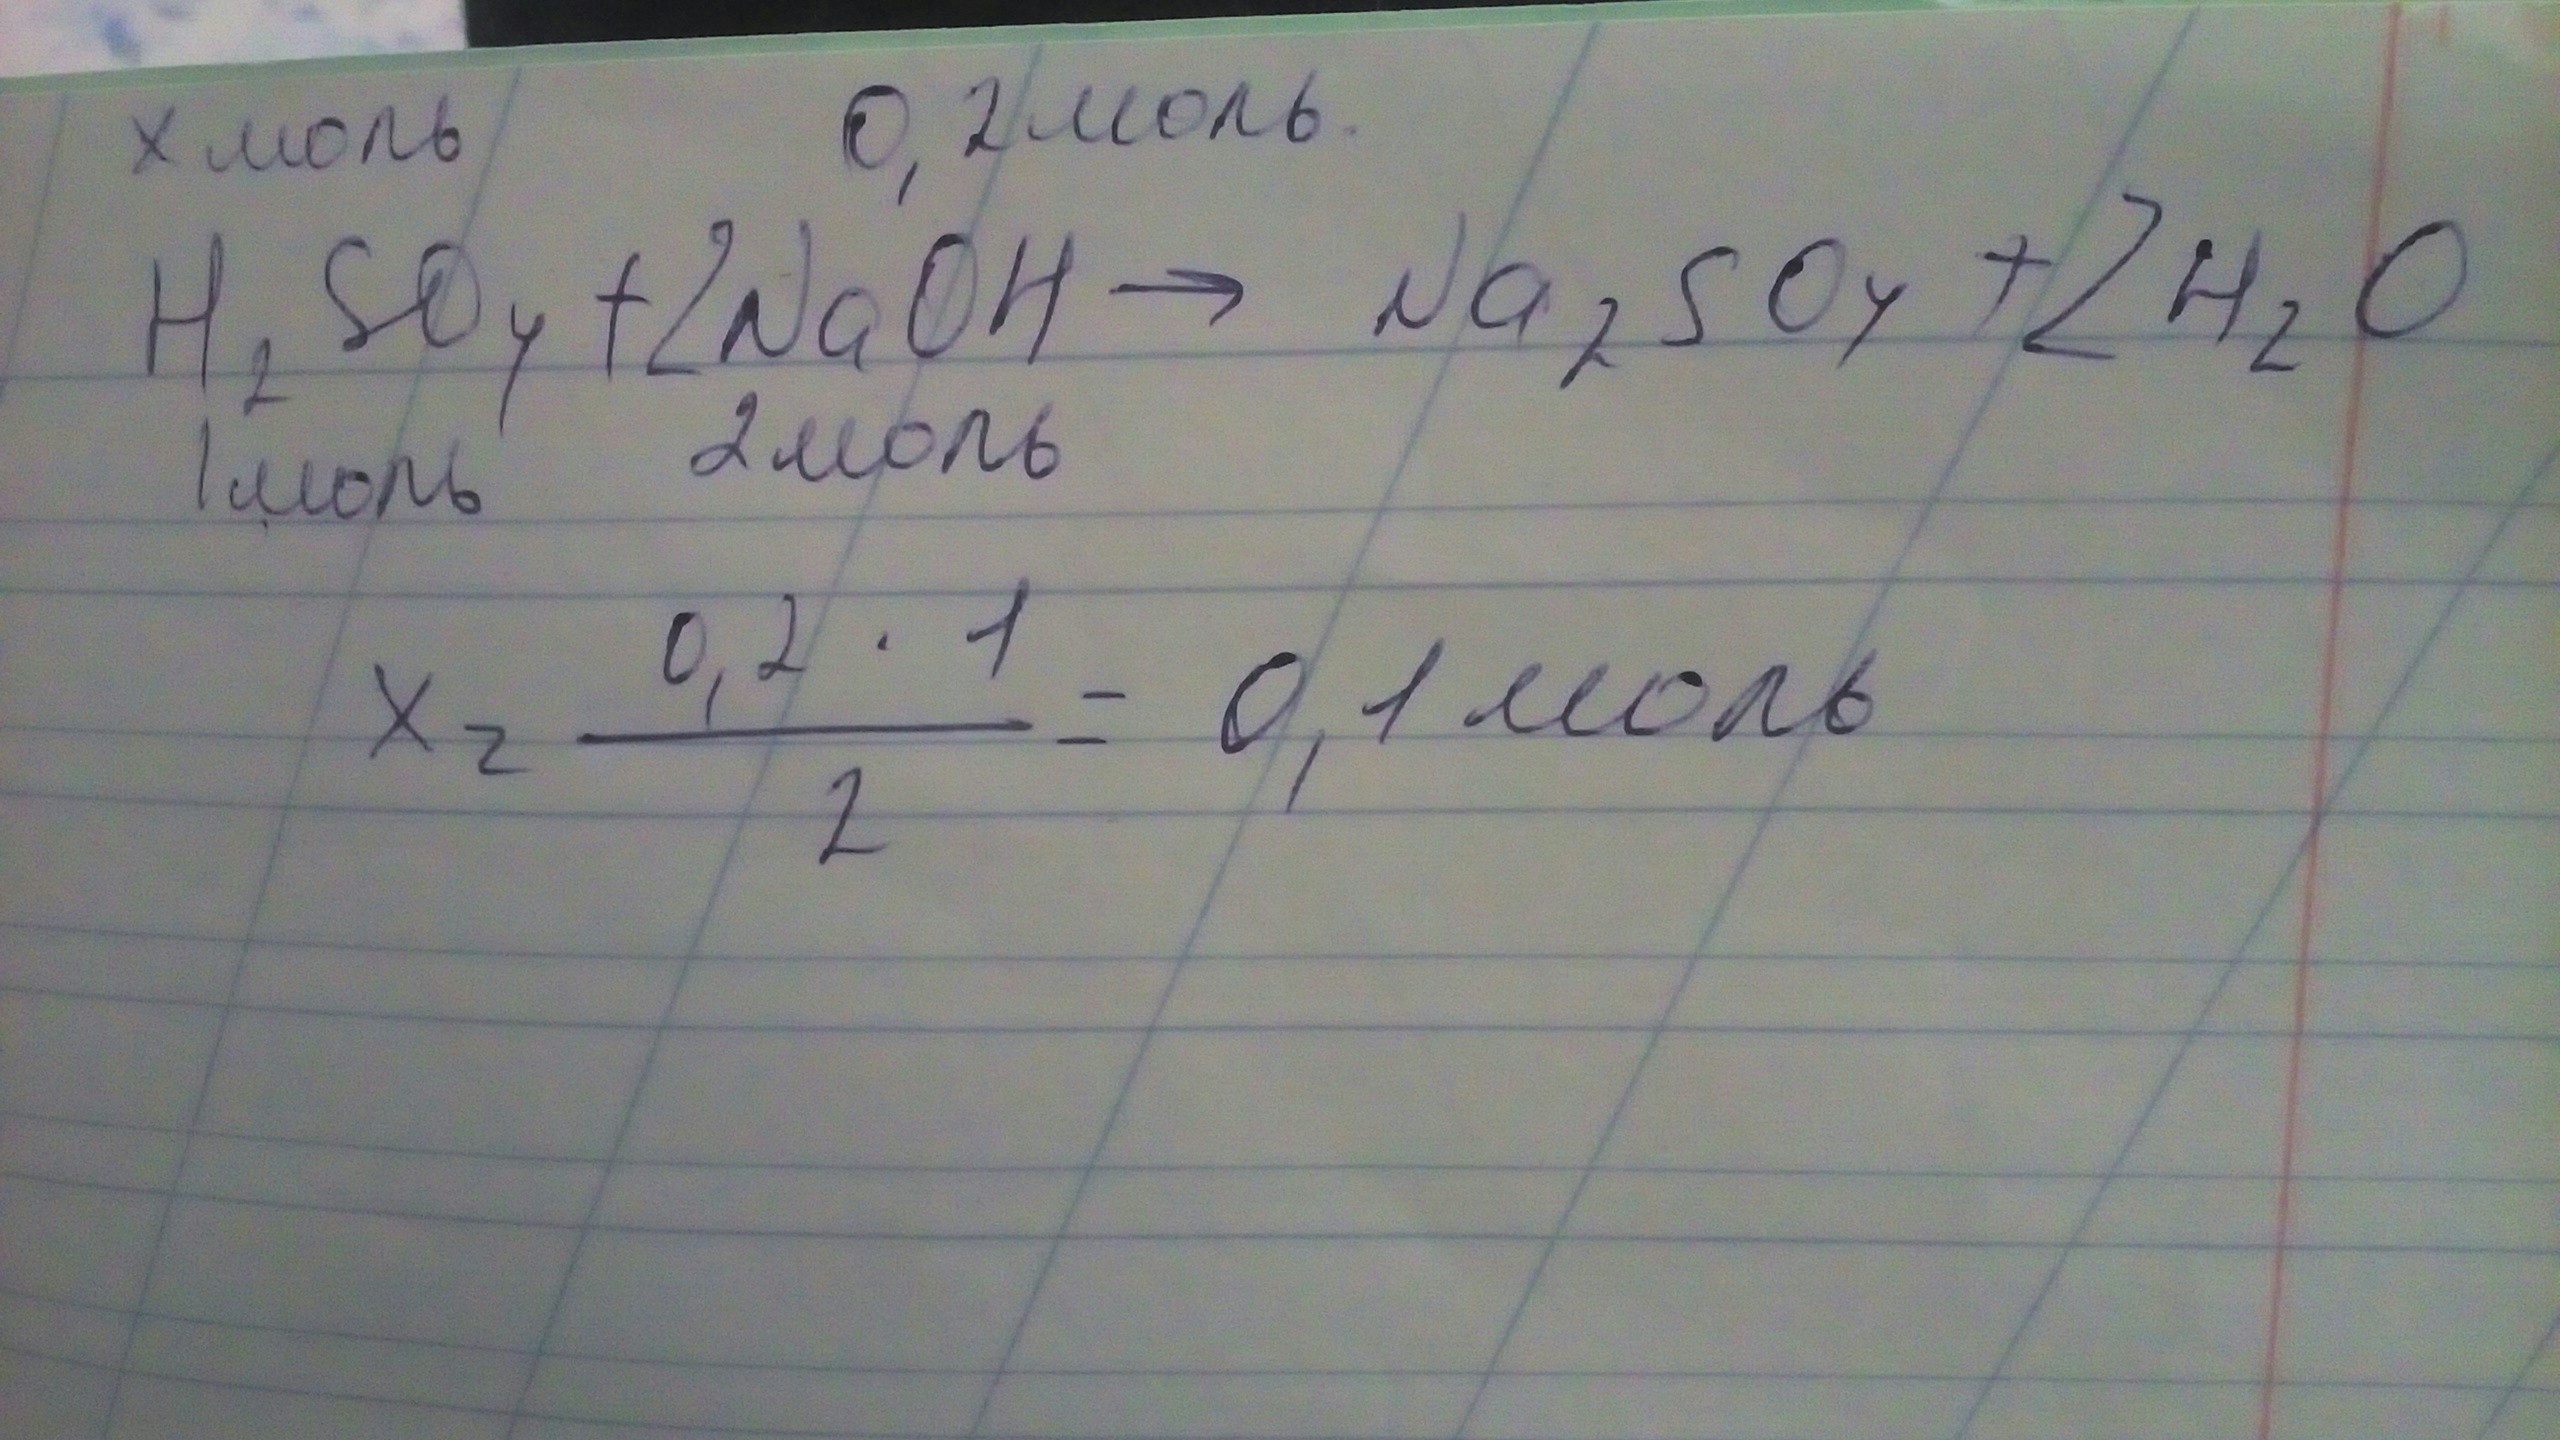 x моль 0,2 моль.
H₂SO₄ + 2NaOH → Na₂SO₄ + 2H₂O
1 моль 2 моль
x = 0,2 · 1 / 2 = 0,1 моль